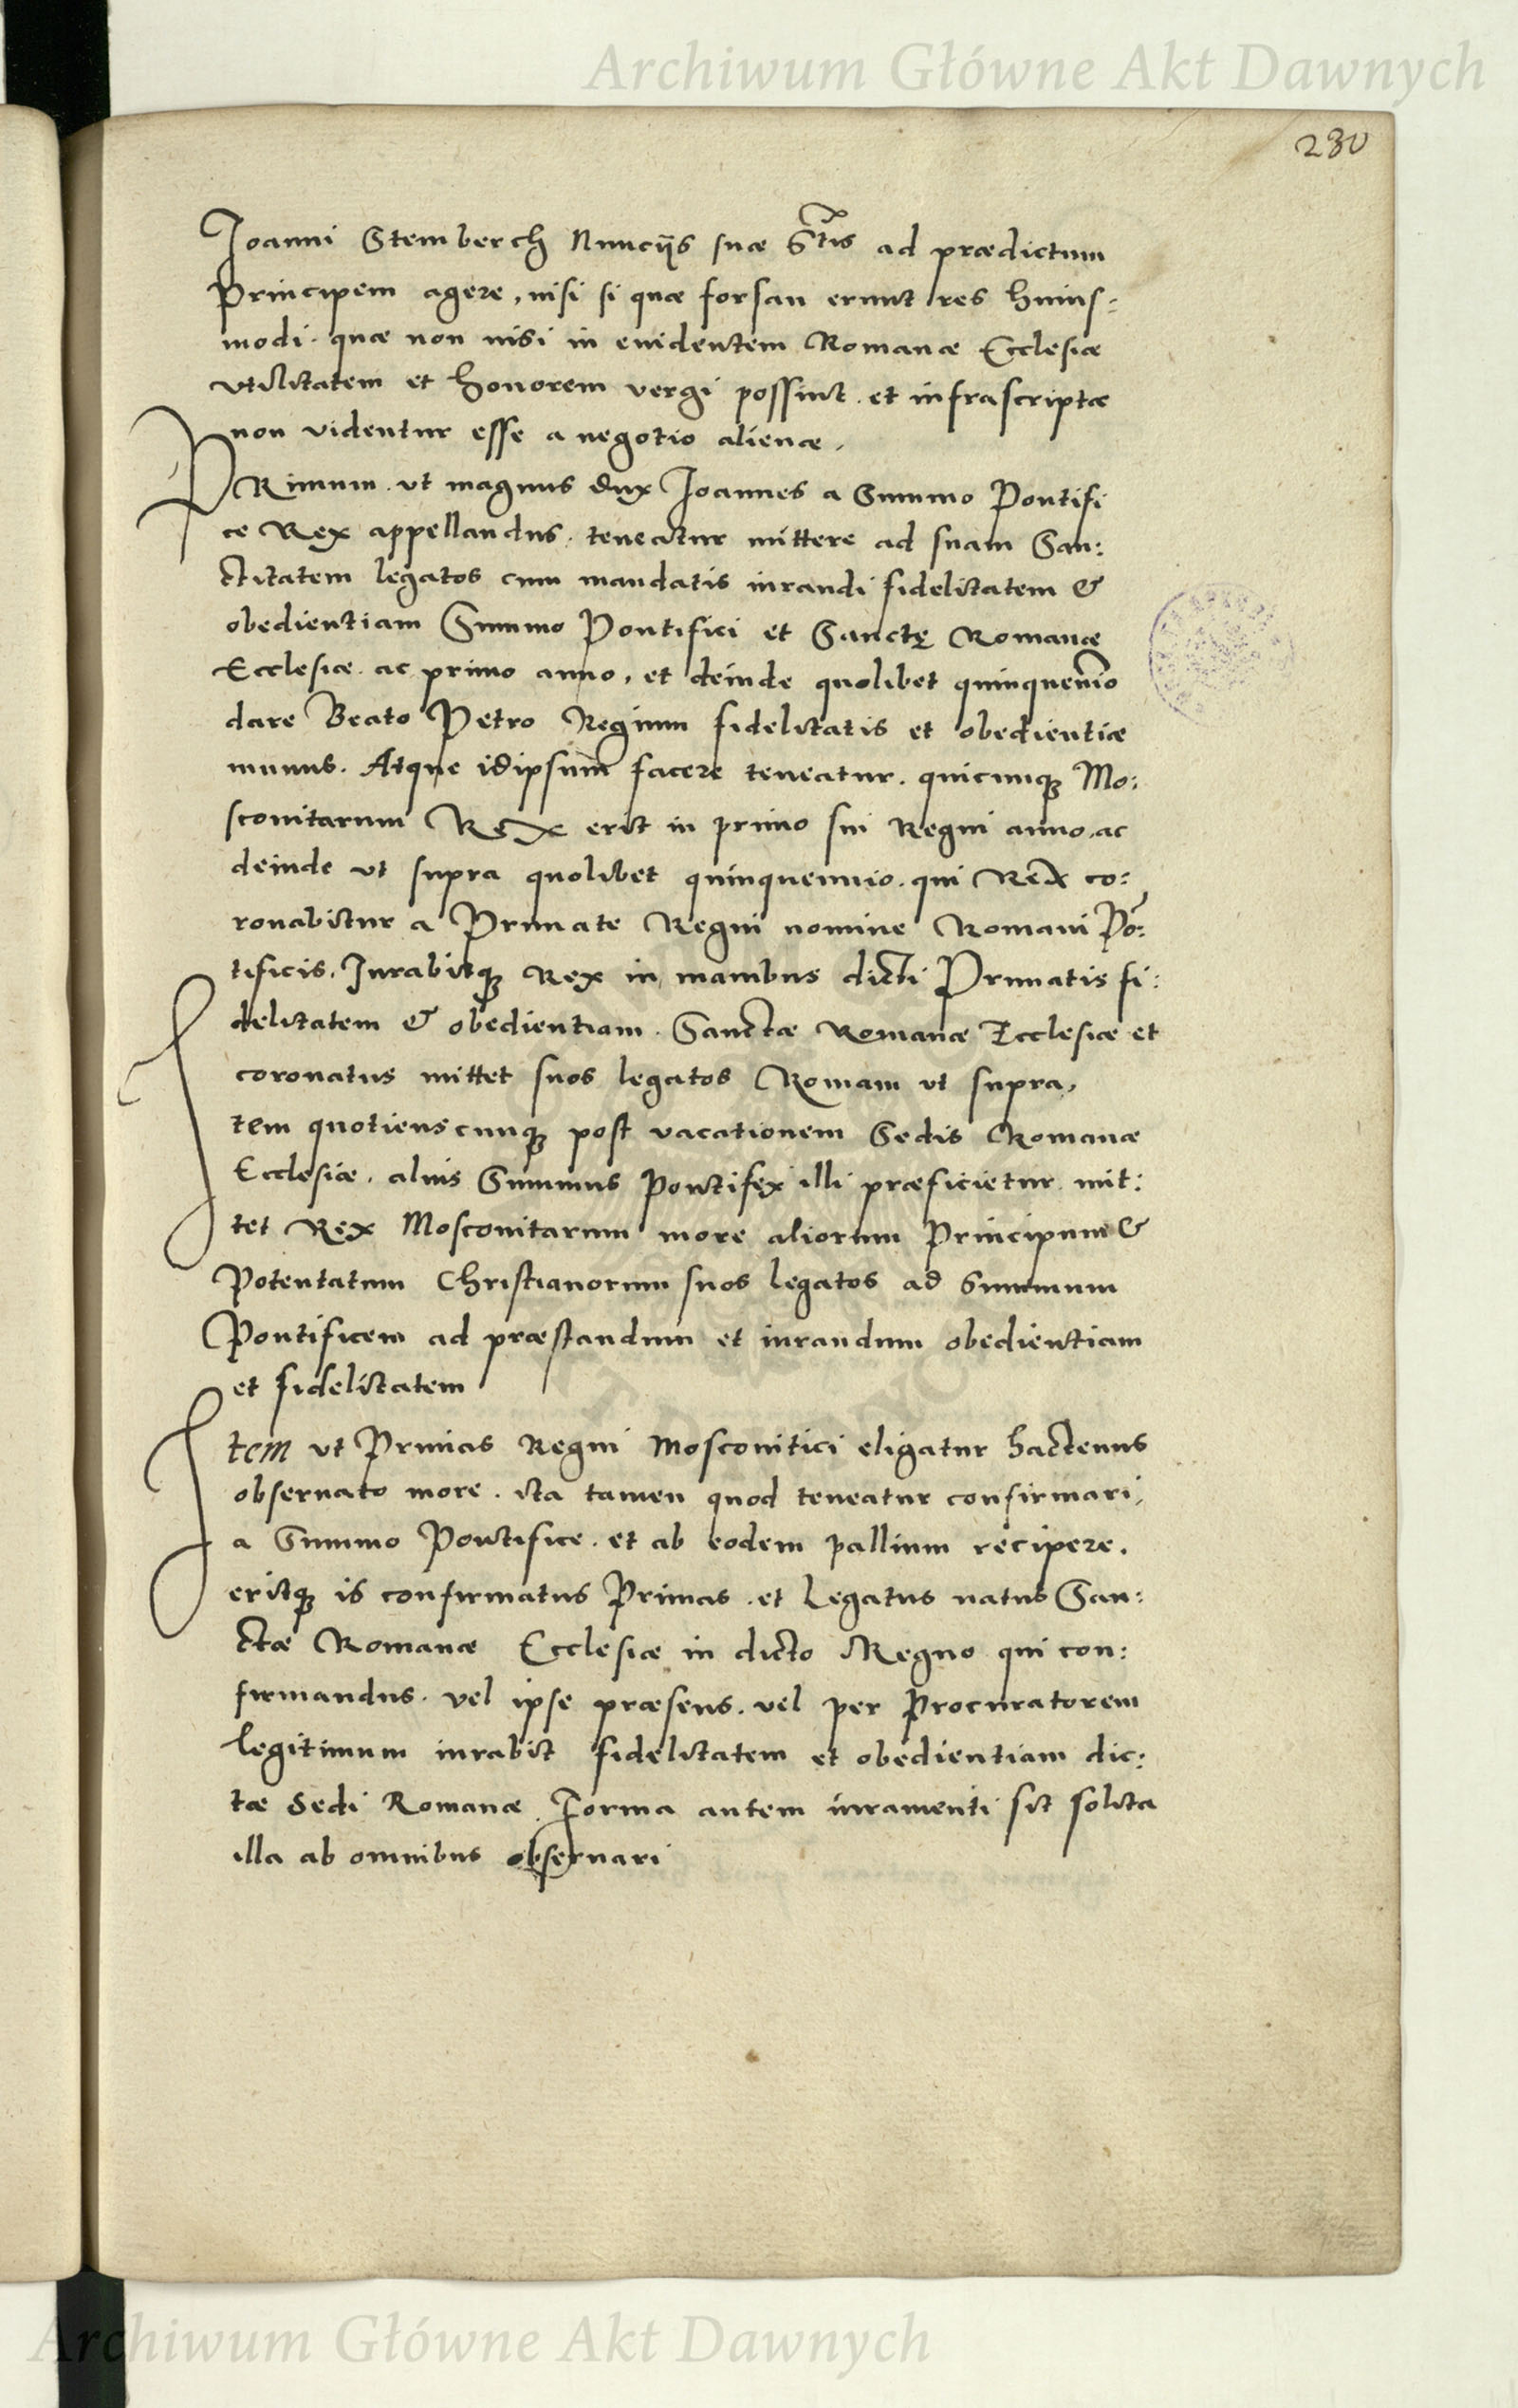 Archiwum Główne Akt Dawnych
230
Joanni Stemberch Nuncijs suæ Stis ad prædictum
Principem agere, nisi si quæ forsan erunt res huius=
modi. quæ non nisi in euidentem Romanæ Ecclesiæ
vtilitatem et honorem vergi possint. et infrascriptæ
non videntur esse a negotio alienæ.
PRimum. vt magnus dux Joannes a Summo Pontifi
ce Rex appellandus. teneatur mittere ad suam San:
ctitatem legatos cum mandatis iurandi fidelitatem &
obedientiam Summo Pontifici et Sanctę Romanæ
Ecclesiæ. ac primo anno, et deinde quolibet quinquennio
dare Beato Petro Regium fidelitatis et obedientiæ
munus. Atque idipsum facere teneatur. quicunq; Mo:
scouitarum Rex erit in primo sui Regni anno. ac
deinde vt supra quolibet quinquennio. qui Rex co:
ronabitur a Primate Regni nomine Romani Pō:
tificis. Jurabitq; Rex in manibus dicti Primatis fi:
delitatem & obedientiam. Sanctæ Romanæ Ecclesiæ et
coronatus mittet suos legatos Romam vt supra,
Jtem quotienscunq; post vacationem Sedis Romanæ
Ecclesiæ. alius Summus Pontifex illi præficietur. mit:
tet Rex Moscouitarum more aliorum Principum &
Potentatum Christianorum suos legatos ad Summum
Pontificem ad præstandum et iurandum obedientiam
et fidelitatem
Jtem vt Primas Regni Moscouitici eligatur hactenus
obseruato more. ita tamen quod teneatur confirmari,
a Summo Pontifice. et ab eodem pallium recipere.
eritq; is confirmatus Primas. et Legatus natus San:
ctæ Romanæ Ecclesiæ in dicto Regno qui con:
firmandus. vel ipse præsens. vel per Procuratorem
legitimum iurabit fidelitatem et obedientiam dic:
tæ Sedi Romanæ. Forma autem iuramenti sit solita
illa ab omnibus obseruari
Archiwum Główne Akt Dawnych